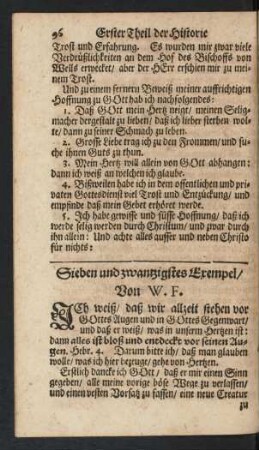 96 Erster Theil der Historie
Trost und Erfahrung. Es wurden mir zwar viele
Verdrüßlichkeiten an dem Hof des Bischoffs von
Wells erwecket/ aber der HErr erschien mir zu mei-
nem Trost.
Und zu einem fernern Beweiß meiner auffrichtigen
Hoffnung zu GOtt hab ich nachfolgendes:
1. Daß GOtt mein Hertz neigt/ meinen Selig-
macher dergestalt zu lieben/ daß ich lieber sterben wol-
te/ dann zu seiner Schmach zu leben.
2. Grosse Liebe trag ich zu den Frommen/ und su-
che ihnen Guts zu thun.
3. Mein Hertz will allein von GOtt abhangen:
dann ich weiß an welchen ich glaube.
4. Bißweilen habe ich in dem offentlichen und pri-
vaten Gottesdienst viel Trost und Entzückung/ und
empfinde daß mein Gebet erhöret werde.
5. Ich habe gewisse und süsse Hoffnung/ daß ich
werde selig werden durch Christum/ und zwar durch
ihn allein: Und achte alles ausser und neben Christo
für nichts:
Sieben und zwantzigstes Exempel/
Von W. F.
ICh weiß/ daß wir allzeit stehen vor
GOttes Augen und in GOttes Gegenwart/
und daß er weiß/ was in unserm Hertzen ist:
dann alles ist bloß und entdeckt vor seinen Au-
gen. Hebr. 4. Darum bitte ich/ daß man glauben
wolle/ was ich hier bezeuge/ gehe von Hertzen.
Erstlich dancke ich GOtt/ daß er mir einen Sinn
gegeben/ alle meine vorige böse Wege zu verlassen/
und einen vesten Vorsatz zu fassen/ eine neue Creatur
zu